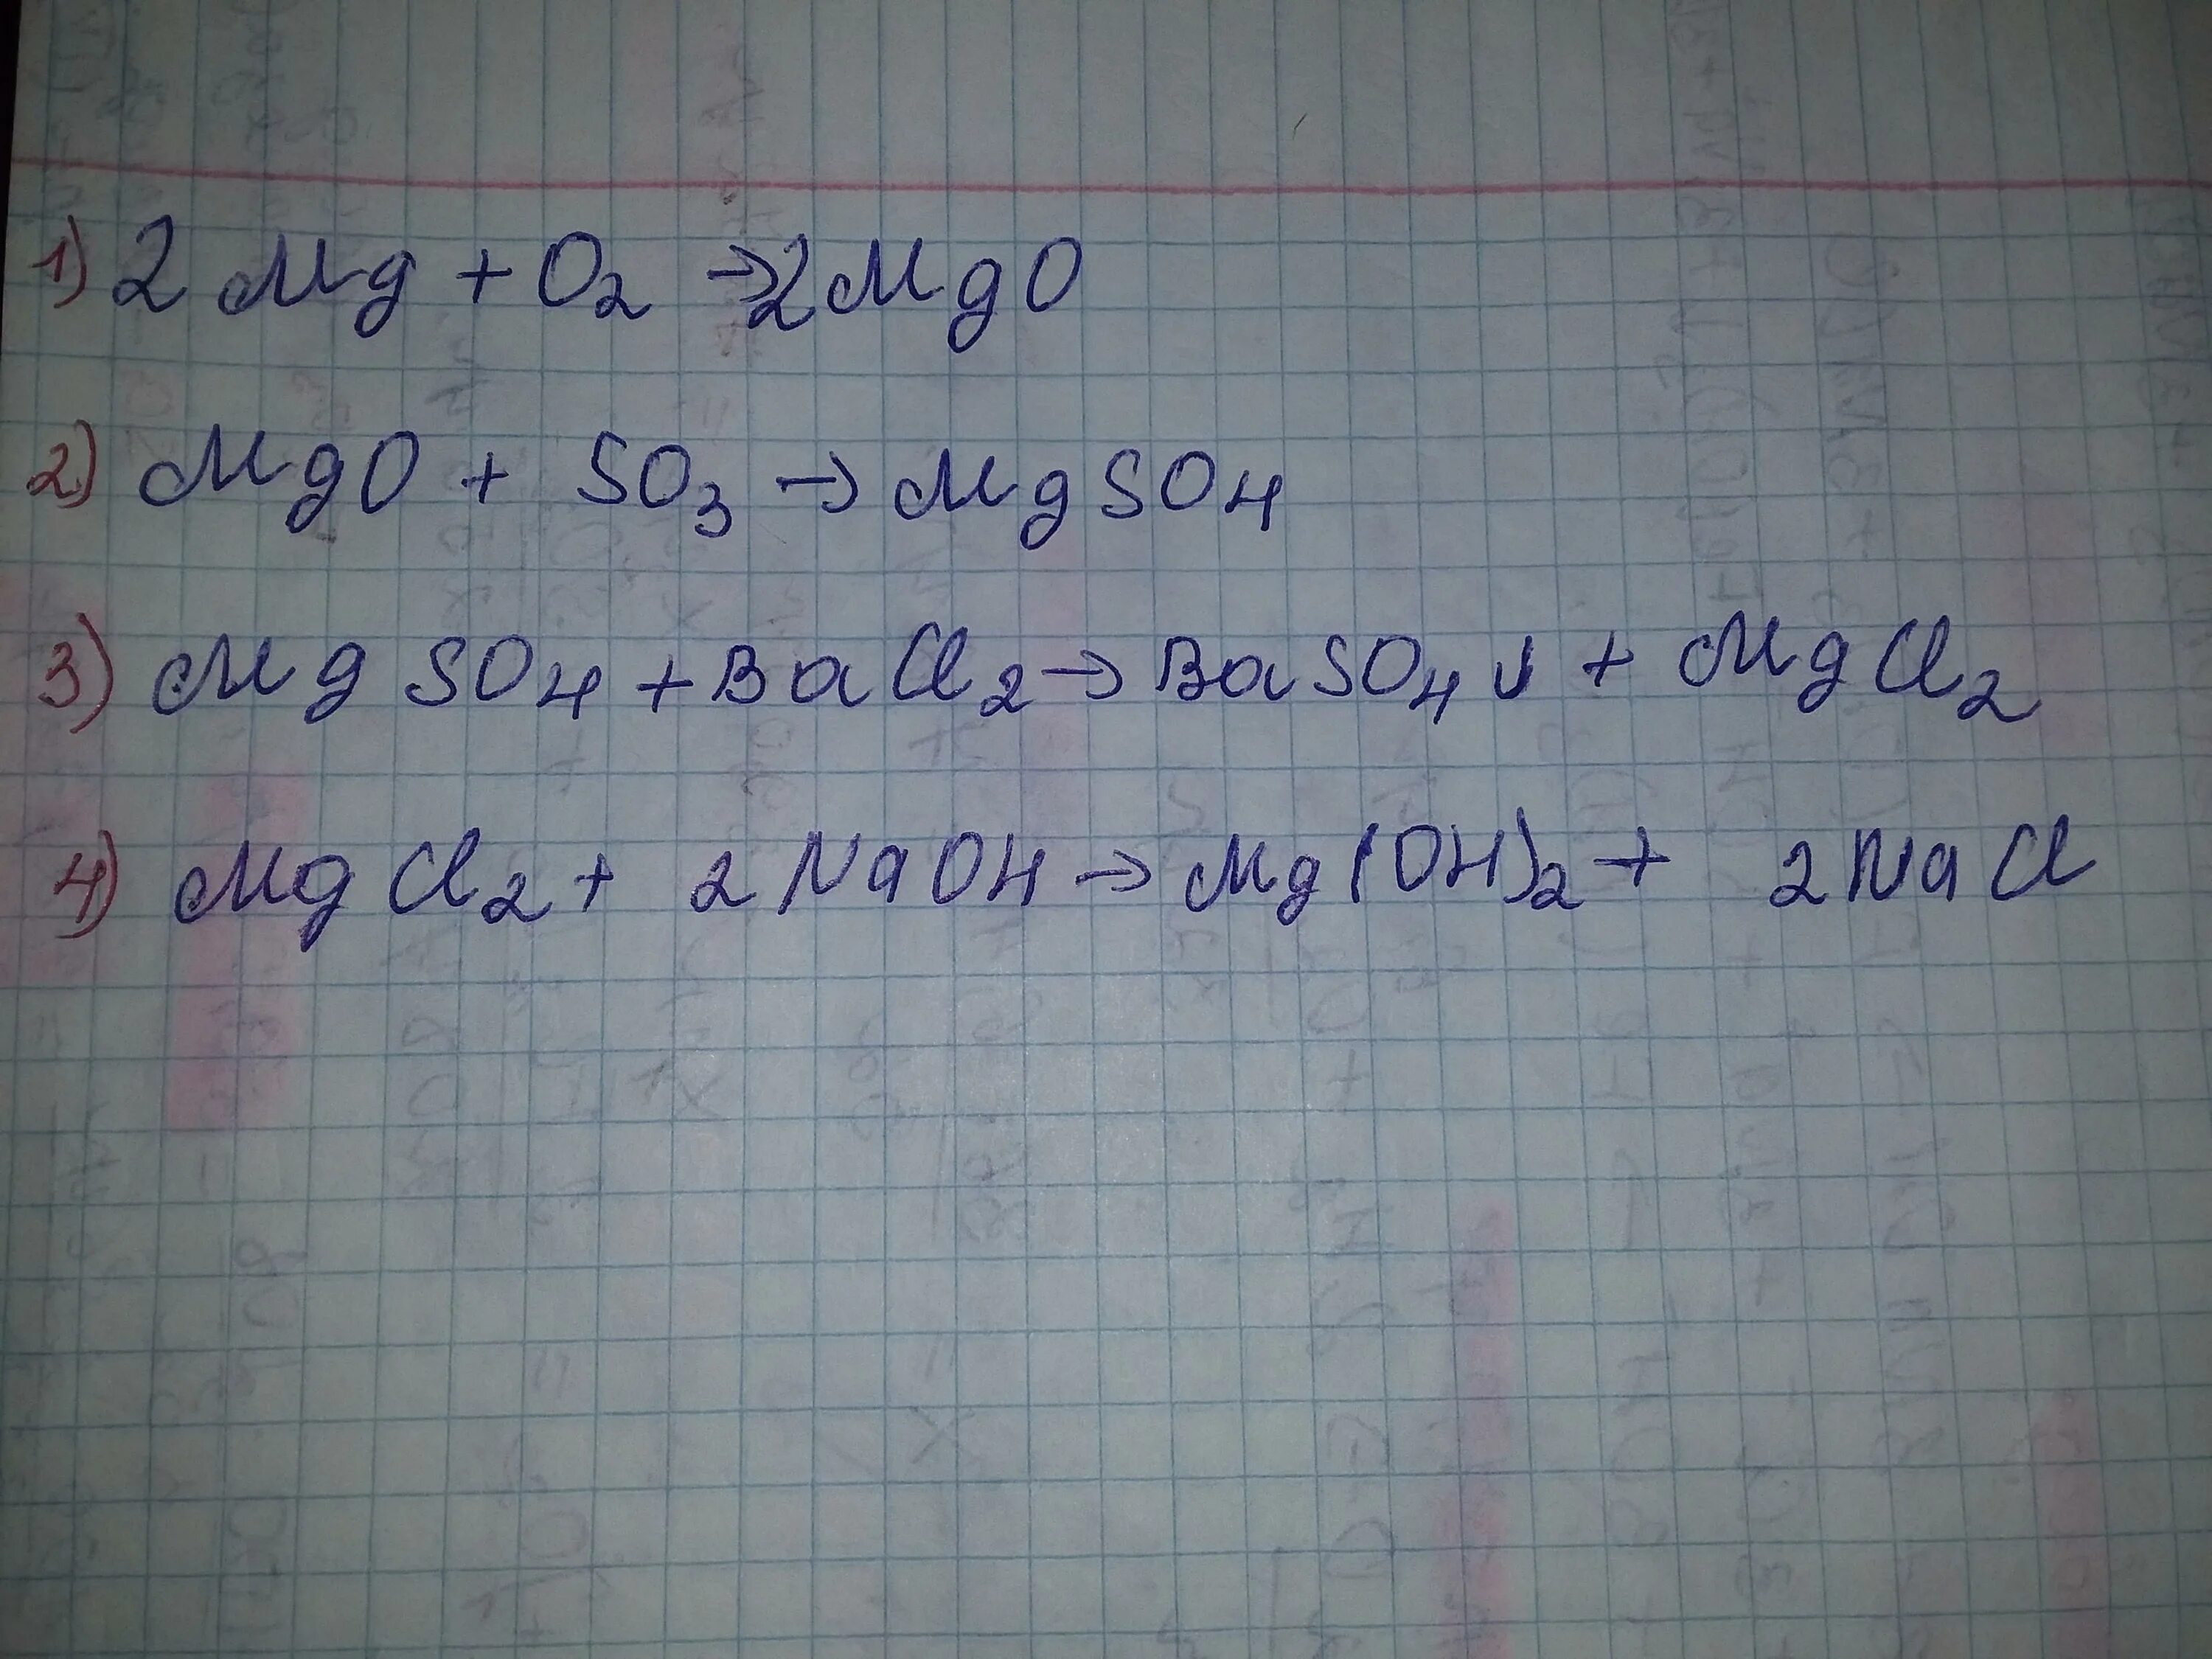 1) 2 Mg + O2 → 2MgO
2) MgO + SO3 → MgSO4
3) MgSO4 + BaCl2 → BaSO4↓ + MgCl2
4) MgCl2 + 2NaOH → Mg(OH)2 + 2NaCl